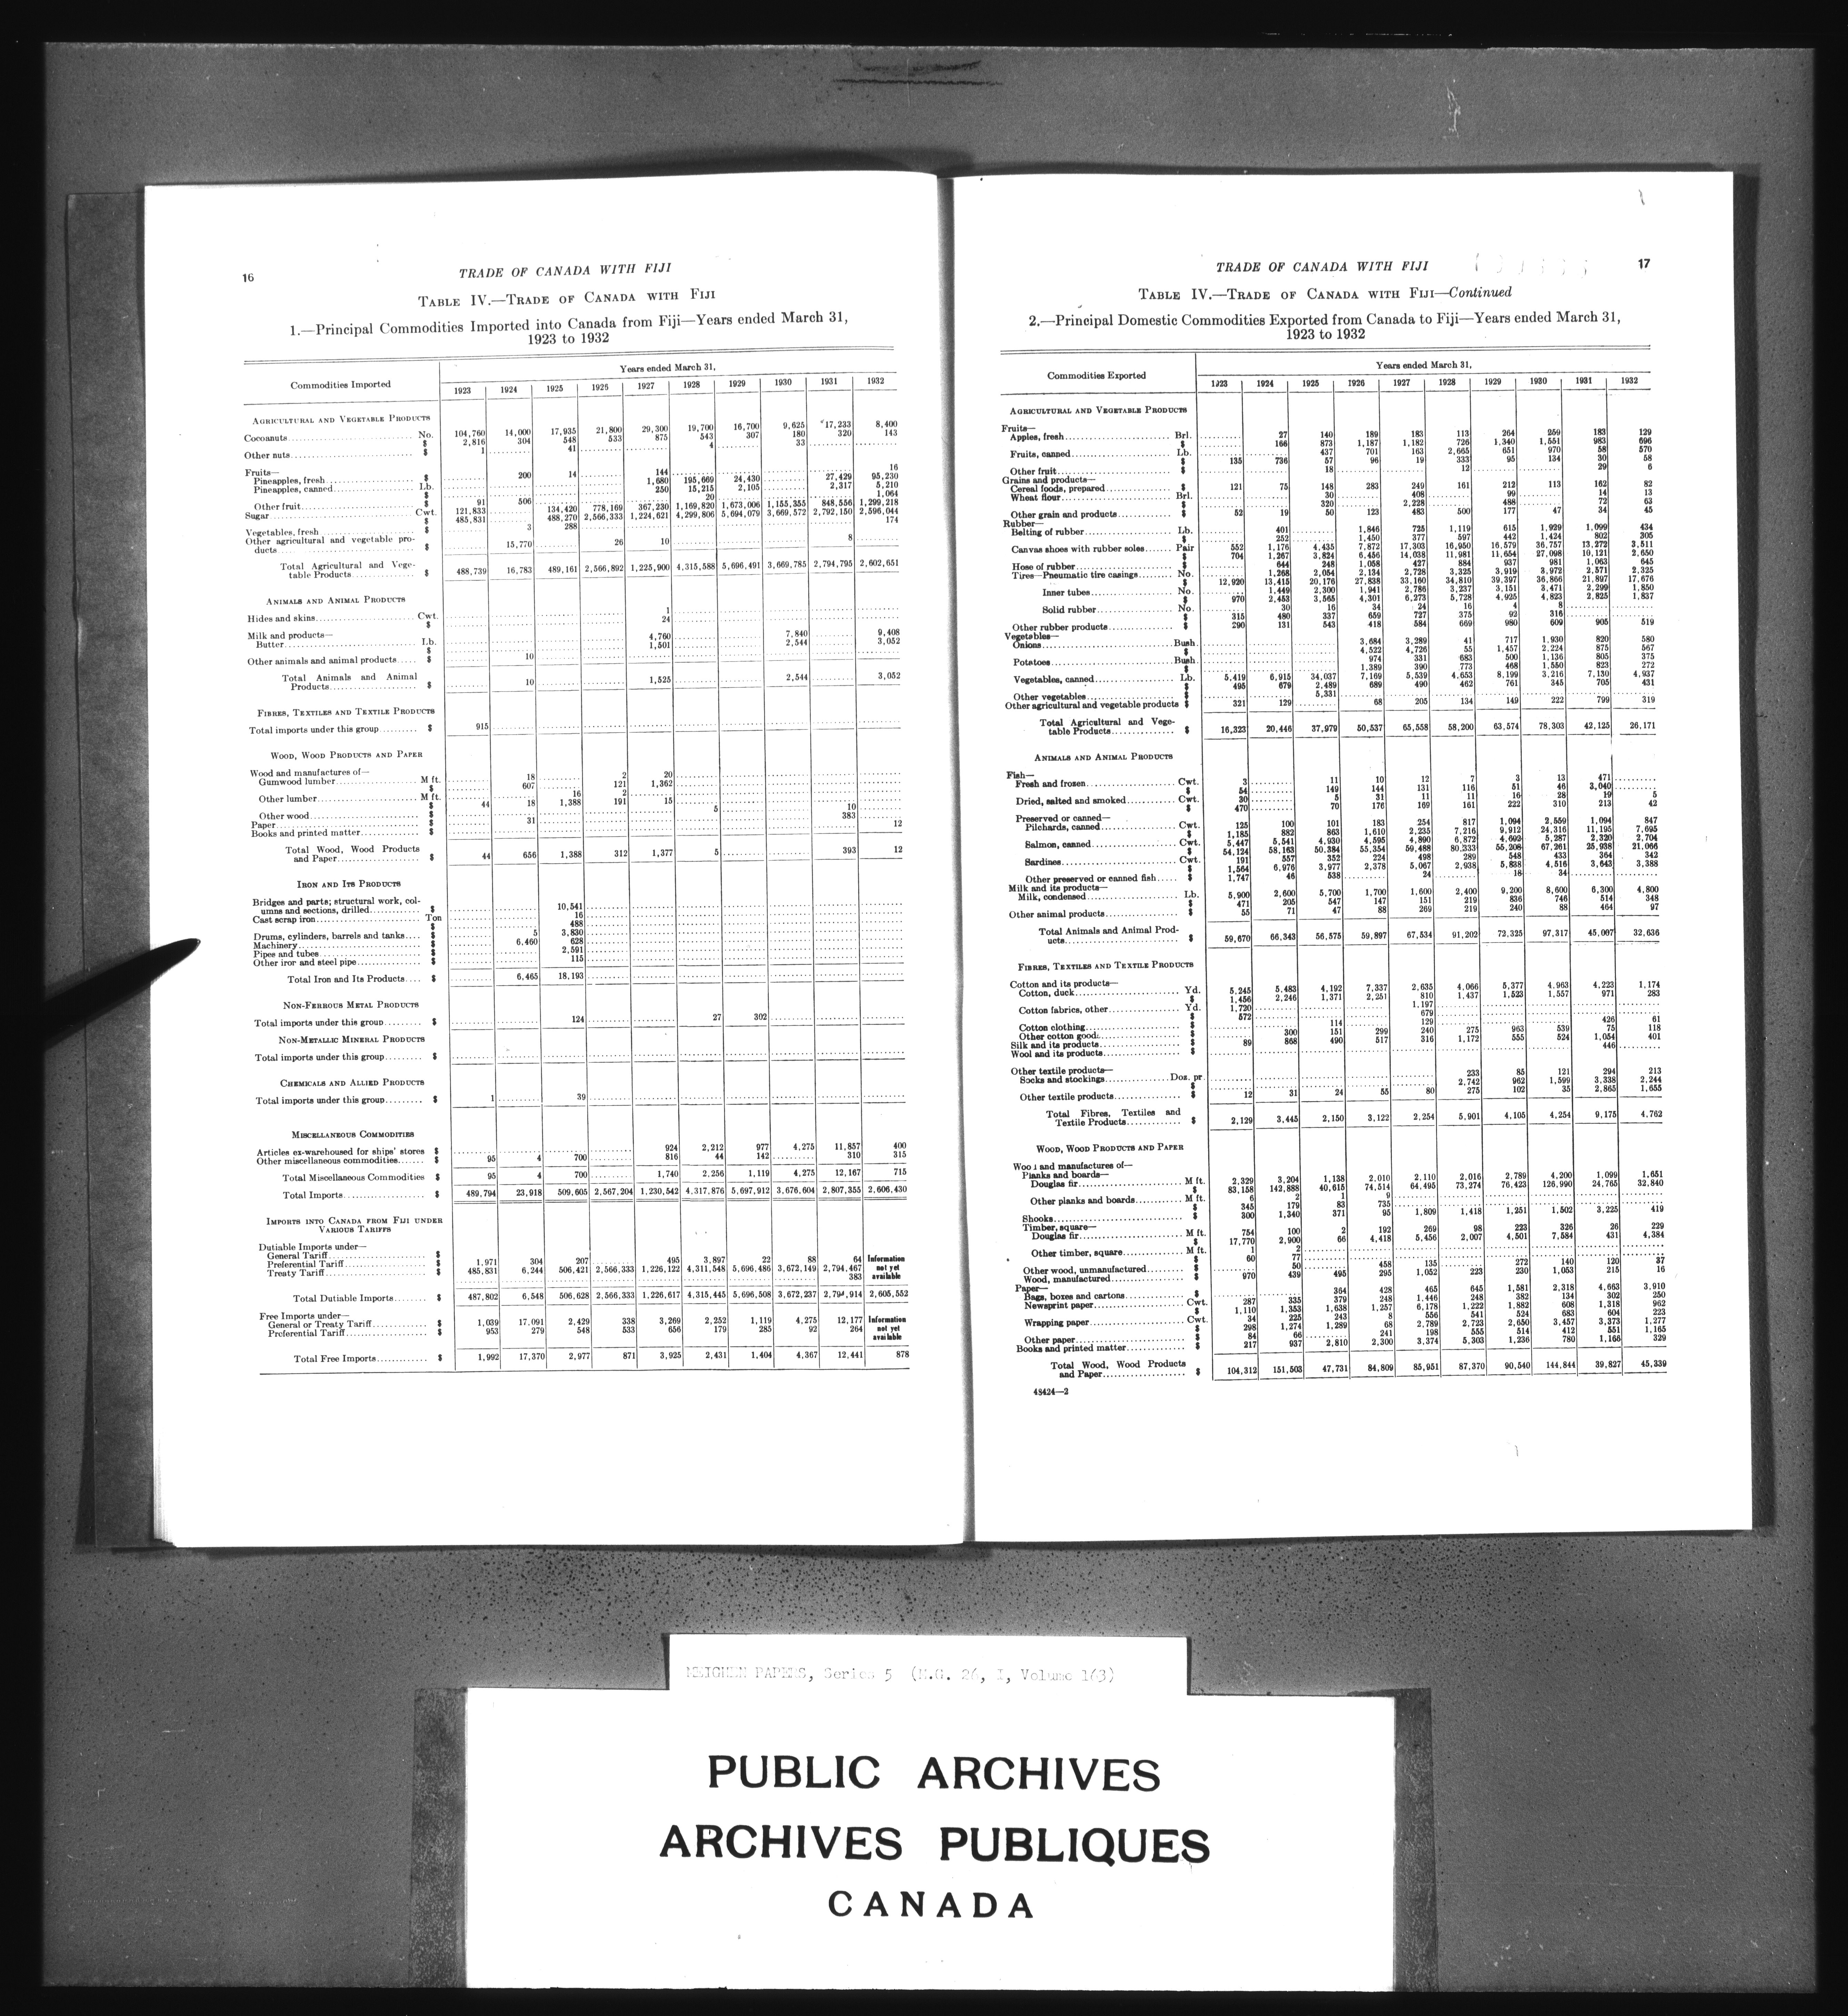 16
TRADE OF CANADA WITH FIJI
TABLE IV.—TRADE OF CANADA WITH FIJI
1.—Principal Commodities Imported into Canada from Fiji—Years ended March 31,
1923 to 1932
Commodities Imported
Years ended March 31,
1923 1924 1925 1925 1927 1928 1929 1930 1931 1932
AGRICULTURAL AND VEGETABLE PRODUCTS
Cocoanuts No. 104,760 14,000 17,935 21,800 29,300 19,700 16,700 9,625 17,233 8,400
$ 2,816 304 548 533 875 543 307 180 320 143
Other nuts $ 1 41 4 33
Fruits—
Pineapples, fresh $ 200 14 144 16
Pineapples, canned Lb. 1,680 195,669 24,430 27,429 95,230
$ 250 15,215 2,105 2,317 5,210
Other fruit $ 91 506 20 1,064
Sugar Cwt. 121,833 134,420 778,169 367,230 1,169,820 1,673,006 1,155,355 848,556 1,299,218
$ 485,831 488,270 2,566,333 1,224,621 4,299,806 5,694,079 3,669,572 2,792,150 2,596,044
Vegetables, fresh $ 3 288 174
Other agricultural and vegetable pro-
ducts $ 15,770 26 10 8
Total Agricultural and Vege-
table Products $ 488,739 16,783 489,161 2,566,892 1,225,900 4,315,588 5,696,491 3,669,785 2,794,795 2,602,651
ANIMALS AND ANIMAL PRODUCTS
Hides and skins Cwt. 1
$ 24
Milk and products—
Butter Lb. 4,760 7,840 9,408
$ 1,501 2,544 3,052
Other animals and animal products $ 10
Total Animals and Animal
Products $ 10 1,525 2,544 3,052
FIBRES, TEXTILES AND TEXTILE PRODUCTS
Total imports under this group $ 915
WOOD, WOOD PRODUCTS AND PAPER
Wood and manufactures of—
Gumwood lumber M ft. 18 2 20
$ 607 121 1,362
Other lumber M ft. 16 2
$ 44 18 1,388 191 15
Other wood $ 5 10
Paper $ 31 383
Books and printed matter $ 12
Total Wood, Wood Products
and Paper $ 44 656 1,388 312 1,377 5 393 12
IRON AND ITS PRODUCTS
Bridges and parts; structural work, col-
umns and sections, drilled $ 10,541
Cast scrap iron Ton 16
$ 488
Drums, cylinders, barrels and tanks $ 5 3,830
Machinery $ 6,460 628
Pipes and tubes $ 2,591
Other iron and steel pipe $ 115
Total Iron and Its Products $ 6,465 18,193
NON-FERROUS METAL PRODUCTS
Total imports under this group $ 124 27 302
NON-METALLIC MINERAL PRODUCTS
Total imports under this group $
CHEMICALS AND ALLIED PRODUCTS
Total imports under this group $ 1 39
MISCELLANEOUS COMMODITIES
Articles ex-warehoused for ships' stores $ 924 2,212 977 4,275 11,857 400
Other miscellaneous commodities $ 95 4 700 816 44 142 310 315
Total Miscellaneous Commodities $ 95 4 700 1,740 2,256 1,119 4,275 12,167 715
Total Imports $ 489,794 23,918 509,605 2,567,204 1,230,542 4,317,876 5,697,912 3,676,604 2,807,355 2,606,430
IMPORTS INTO CANADA FROM FIJI UNDER
VARIOUS TARIFFS
Dutiable Imports under—
General Tariff $ 1,971 304 207 495 3,897 22 88 64 Information
Preferential Tariff $ 485,831 6,244 506,421 2,566,333 1,226,122 4,311,548 5,696,486 3,672,149 2,794,467 not yet
Treaty Tariff $ 383 available
Total Dutiable Imports $ 487,802 6,548 506,628 2,566,333 1,226,617 4,315,445 5,696,508 3,672,237 2,794,914 2,605,552
Free Imports under—
General or Treaty Tariff $ 1,039 17,091 2,429 338 3,269 2,252 1,119 4,275 12,177 Information
Preferential Tariff $ 953 279 548 533 656 179 285 92 264 not yet
available
Total Free Imports $ 1,992 17,370 2,977 871 3,925 2,431 1,404 4,367 12,441 878
TRADE OF CANADA WITH FIJI
17
TABLE IV.—TRADE OF CANADA WITH FIJI—Continued
2.—Principal Domestic Commodities Exported from Canada to Fiji—Years ended March 31,
1923 to 1932
Commodities Exported
Years ended March 31,
1923 1924 1925 1926 1927 1928 1929 1930 1931 1932
AGRICULTURAL AND VEGETABLE PRODUCTS
Fruits—
Apples, fresh Brl. 27 140 189 183 113 264 259 183 129
$ 166 873 1,187 1,182 726 1,340 1,551 983 696
Fruits, canned Lb. 437 701 163 2,665 651 970 58 570
$ 135 736 57 96 19 333 95 134 30 58
Other fruit $ 18 12 29 6
Grains and products—
Cereal foods, prepared $ 121 75 148 283 249 161 212 113 162 82
Wheat flour Brl. 30 408 99 14 13
$ 320 2,228 488 72 63
Other grain and products $ 52 19 50 123 483 500 177 47 34 45
Rubber—
Belting of rubber Lb. 401 1,846 725 1,119 615 1,929 1,099 434
$ 252 1,450 377 597 442 1,424 802 305
Canvas shoes with rubber soles Pair 552 1,176 4,435 7,872 17,303 16,950 16,579 36,757 13,272 3,511
$ 704 1,267 3,824 6,456 14,038 11,981 11,654 27,098 10,121 2,650
Hose of rubber $ 644 248 1,058 427 884 937 981 1,063 645
Tires—Pneumatic tire casings No. 1,268 2,054 2,134 2,728 3,325 3,919 3,972 2,571 2,325
$ 12,920 13,415 20,176 27,838 33,160 34,810 39,397 36,866 21,897 17,676
Inner tubes No. 1,449 2,300 1,941 2,786 3,237 3,151 3,471 2,299 1,850
$ 970 2,453 3,565 4,301 6,273 5,728 4,925 4,823 2,825 1,837
Solid rubber No. 30 16 34 24 16 4 8
$ 315 480 337 659 727 375 92 316
Other rubber products $ 290 131 543 418 584 669 980 609 905 519
Vegetables—
Onions Bush. 3,684 3,289 41 717 1,930 820 580
$ 4,522 4,726 55 1,457 2,224 875 567
Potatoes Bush. 974 331 683 500 1,136 805 375
$ 1,389 390 773 468 1,550 823 272
Vegetables, canned Lb. 5,419 6,915 34,037 7,169 5,539 4,653 8,199 3,216 7,130 4,937
$ 495 679 2,489 689 490 462 761 345 705 431
Other vegetables $ 5,331
Other agricultural and vegetable products $ 321 129 68 205 134 149 222 799 319
Total Agricultural and Vege-
table Products $ 16,323 20,446 37,979 50,537 65,558 58,200 63,574 78,303 42,125 26,171
ANIMALS AND ANIMAL PRODUCTS
Fish—
Fresh and frozen Cwt. 3 11 10 12 7 3 13 471
$ 54 149 144 131 116 51 46 3,040
Dried, salted and smoked Cwt. 30 5 31 11 11 16 28 19 5
$ 470 70 176 169 161 222 310 213 42
Preserved or canned—
Pilchards, canned Cwt. 125 100 101 183 254 817 1,094 2,559 1,094 847
$ 1,185 882 863 1,610 2,235 7,216 9,912 24,316 11,195 7,695
Salmon, canned Cwt. 5,447 5,541 4,930 4,595 4,890 6,872 4,602 5,287 2,320 2,704
$ 54,124 58,163 50,384 55,354 59,488 80,233 55,208 67,261 25,938 21,066
Sardines Cwt. 191 557 352 224 498 289 548 433 364 342
$ 1,564 6,976 3,977 2,378 5,067 2,938 5,838 4,516 3,643 3,388
Other preserved or canned fish $ 1,747 46 538 24 18 34
Milk and its products—
Milk, condensed Lb. 5,900 2,600 5,700 1,700 1,600 2,400 9,200 8,600 6,300 4,800
$ 471 205 547 147 151 219 836 746 514 348
Other animal products $ 55 71 47 88 269 219 240 88 464 97
Total Animals and Animal Prod-
ucts $ 59,670 66,343 56,575 59,897 67,534 91,202 72,325 97,317 45,007 32,636
FIBRES, TEXTILES AND TEXTILE PRODUCTS
Cotton and its products—
Cotton, duck Yd. 5,245 5,483 4,192 7,337 2,635 4,066 5,377 4,963 4,223 1,174
$ 1,456 2,246 1,371 2,251 810 1,437 1,523 1,557 971 283
Cotton fabrics, other Yd. 1,720 1,197
$ 572 679
Cotton clothing $ 114 129 426 61
Other cotton goods $ 300 151 299 240 275 963 539 75 118
Silk and its products $ 89 868 490 517 316 1,172 555 524 1,054 401
Wool and its products $ 446
Other textile products—
Socks and stockings Doz. pr. 233 85 121 294 213
$ 2,742 962 1,599 3,338 2,244
Other textile products $ 12 31 24 55 80 275 102 35 2,865 1,655
Total Fibres, Textiles and
Textile Products $ 2,129 3,445 2,150 3,122 2,254 5,901 4,105 4,254 9,175 4,762
WOOD, WOOD PRODUCTS AND PAPER
Wood and manufactures of—
Planks and boards—
Douglas fir M ft. 2,329 3,204 1,138 2,010 2,110 2,016 2,789 4,200 1,099 1,651
$ 83,158 142,888 40,615 74,514 64,495 73,274 76,423 126,990 24,765 32,840
Other planks and boards M ft. 6 2 1 9
$ 345 179 83 735
Shooks $ 300 1,340 371 95 1,809 1,418 1,251 1,502 3,225 419
Timber, square—
Douglas fir M ft. 754 100 2 192 269 98 223 326 26 229
$ 17,770 2,900 66 4,418 5,456 2,007 4,501 7,584 431 4,384
Other timber, square M ft. 1 2
$ 60 77
Other wood, unmanufactured $ 50 458 135 272 140 120 37
Wood, manufactured $ 970 439 495 295 1,052 223 230 1,053 215 16
Paper—
Bags, boxes and cartons $ 364 428 465 645 1,581 2,318 4,663 3,910
Newsprint paper Cwt. 287 335 379 248 1,446 248 382 134 302 250
$ 1,110 1,353 1,638 1,257 6,178 1,222 1,882 608 1,318 962
Wrapping paper Cwt. 34 225 243 8 556 541 524 683 604 223
$ 298 1,274 1,289 68 2,789 2,723 2,650 3,457 3,373 1,277
Other paper $ 84 66 241 198 555 514 412 551 1,165
Books and printed matter $ 217 937 2,810 2,300 3,374 5,303 1,236 780 1,166 329
Total Wood, Wood Products
and Paper $ 104,312 151,503 47,731 84,809 85,951 87,370 90,540 144,844 39,827 45,339
48424—2
MEIGHEN PAPERS, Series 5 (M.G. 26, I, Volume 163)
PUBLIC ARCHIVES
ARCHIVES PUBLIQUES
CANADA